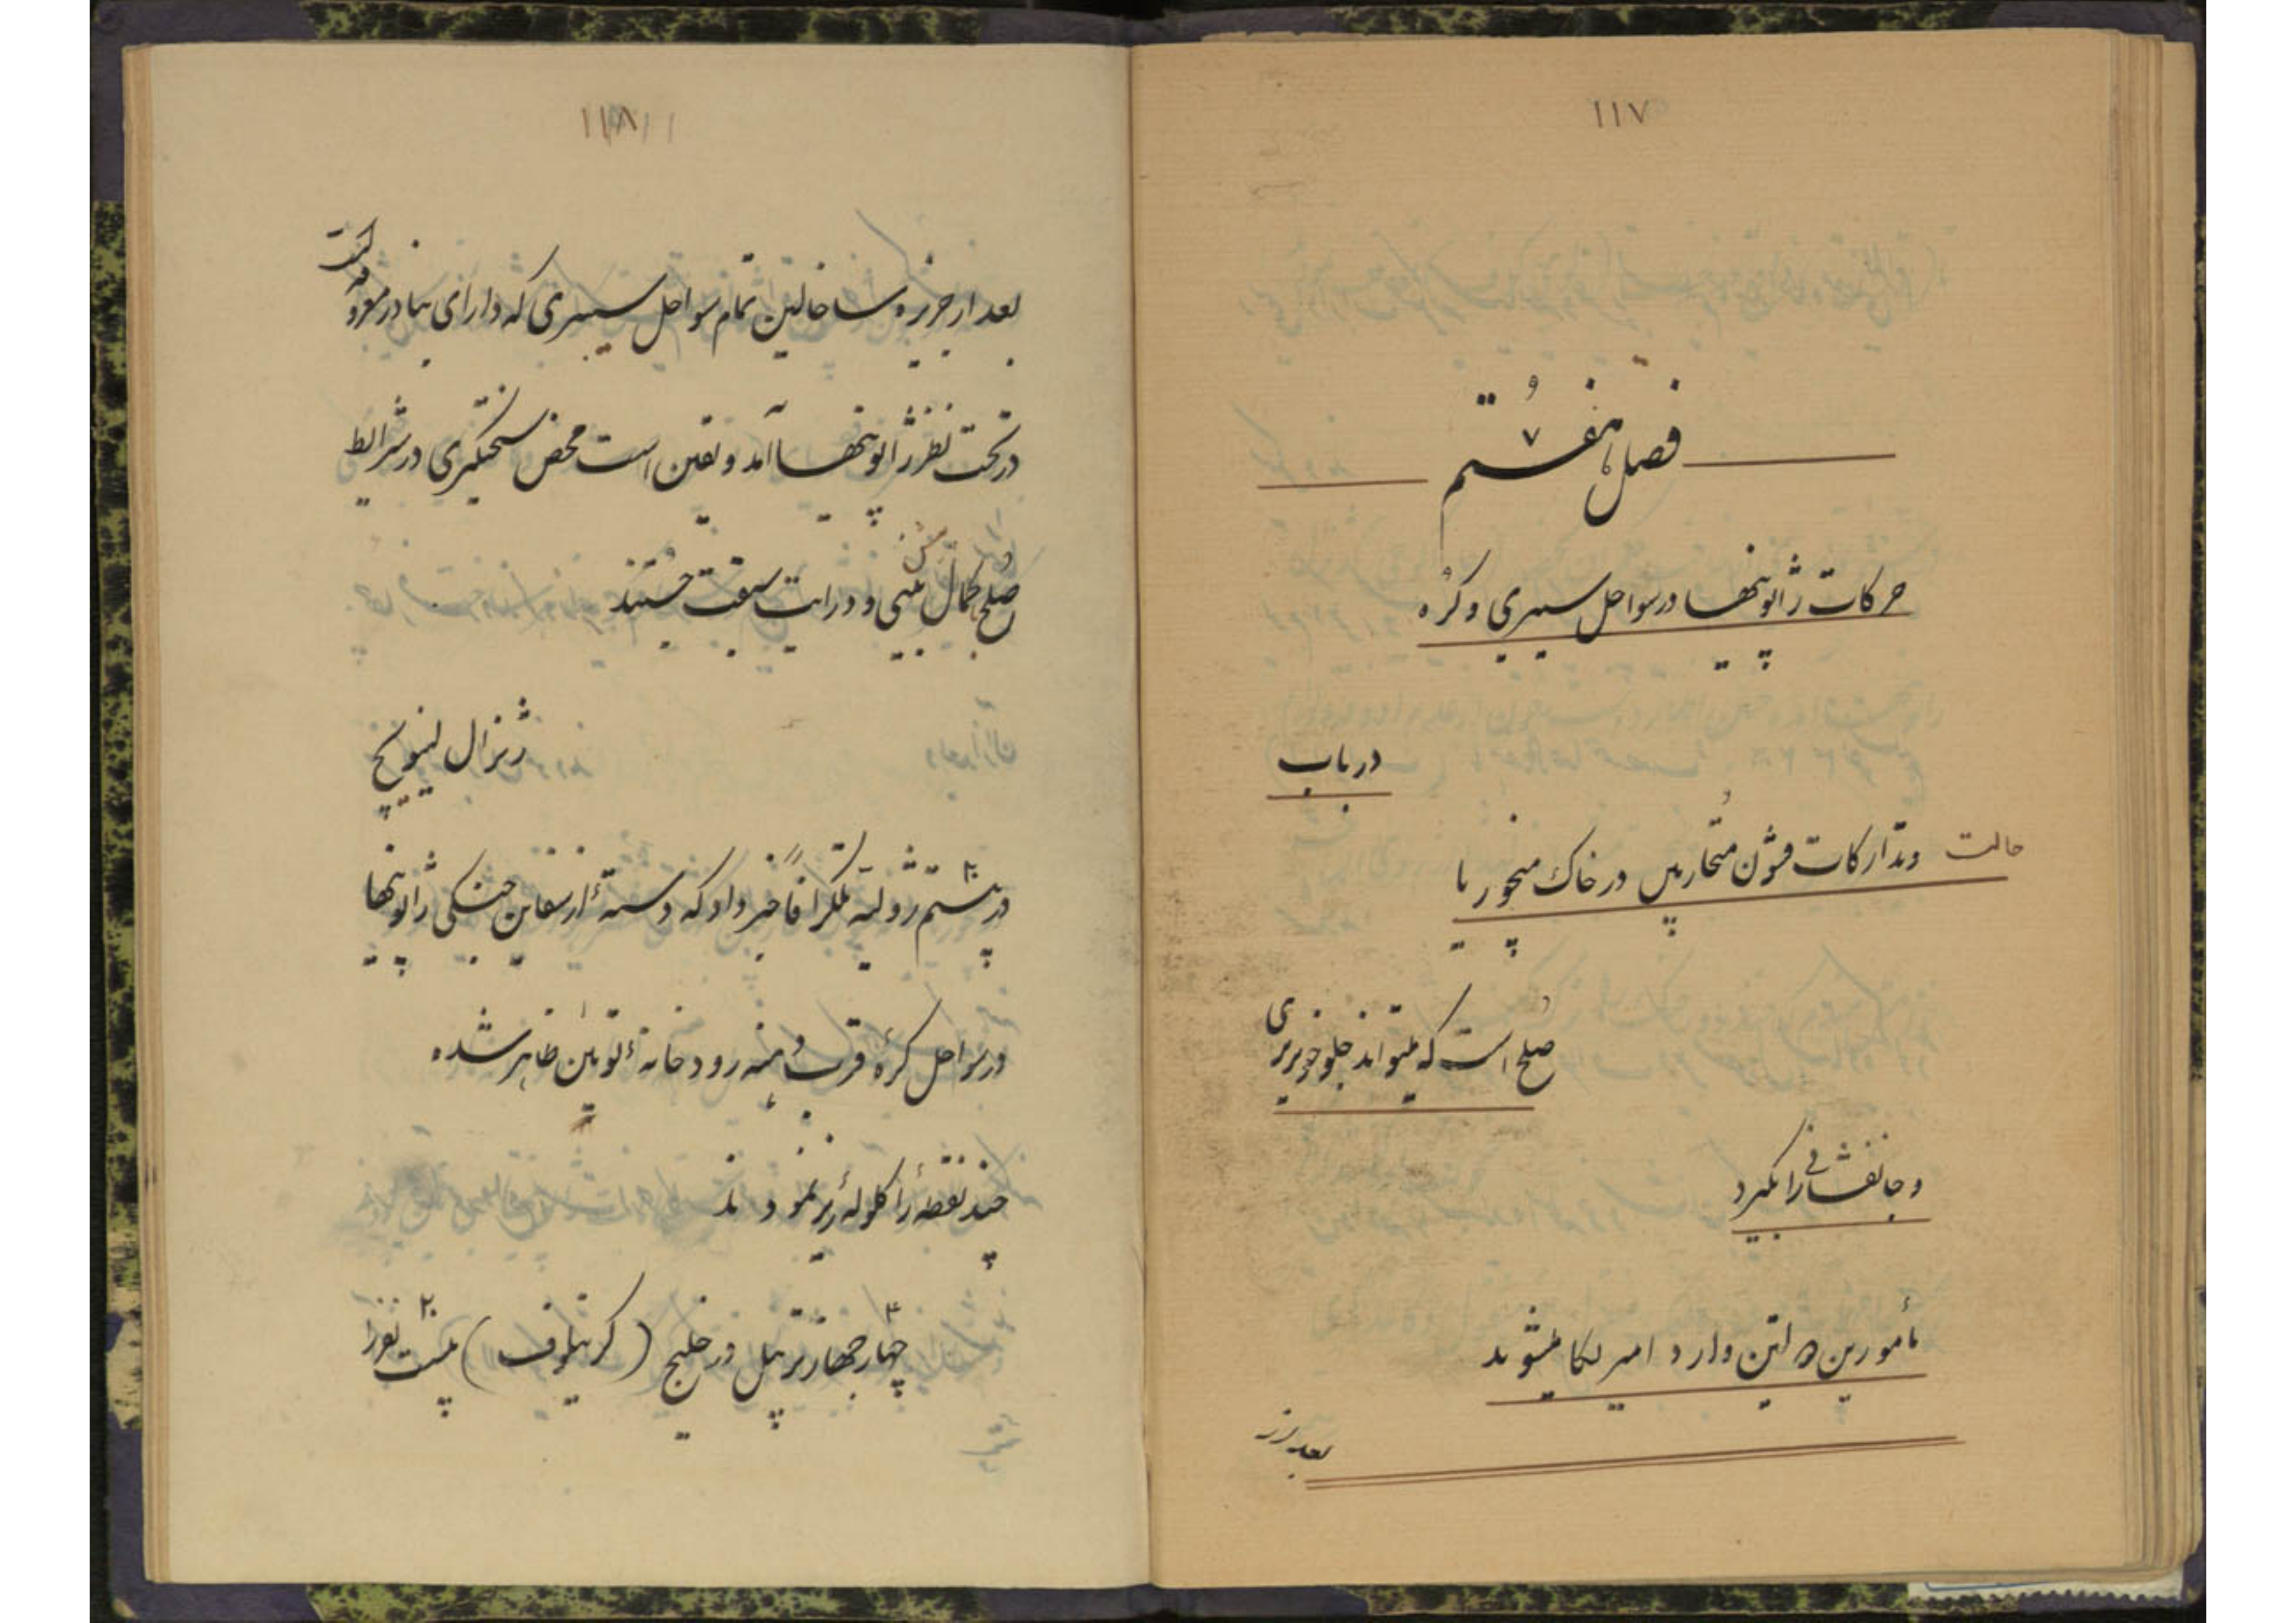 ۱۱۷
فصل هفتم
۷
حرکات ژاپونیها در سواحل سیبری و کُره
در باب
حالت و تدارکات قشون متحاربین در خاک منچوریا
صلح است که میتواند جلو خونریزی
و جانفشانی را بگیرد
مأمورین دولتین وارد امیریکا میشوند
بعد از
۱۱۸
بعد از جزیره ساخالین تمام سواحل سیبری که دارای بنادر معروفه است
در تحت نظر ژاپونیها آمد و یقین است محض سختگیری در شرایط
صلح بکمال بینی و درایت سبقت جستند
ژنرال لینویچ
در بیستم ژولیه تلگرافاً خبر داد که دستهٔ از سفاین جنگی ژاپونیها
در سواحل کرهٔ قرب دهنه رودخانهٔ تویمن ظاهر شده
چند نقطه را گلوله ریز نمودند
۴ چهار جهاز ترپیل در خلیج (کرنیلوف) ۲۰ بیست نفر را